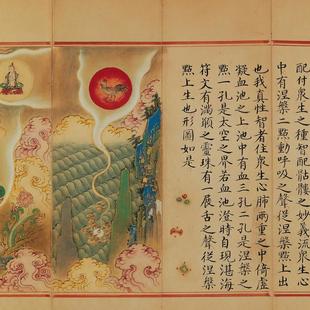 配付衆生之種智配骷髏之妙義流衆生心
中有涅槃二㸃動呼吸之聲從涅槃㸃上出
也我真性智者住衆生心肺兩重之中倚虛
凝血池之上池中有血三孔二孔是涅槃之
㸃一孔是太空之界若血池澄時自現湛海
符文有滿願之靈珠有一展舌之聲從涅槃
㸃上生也形圖如是